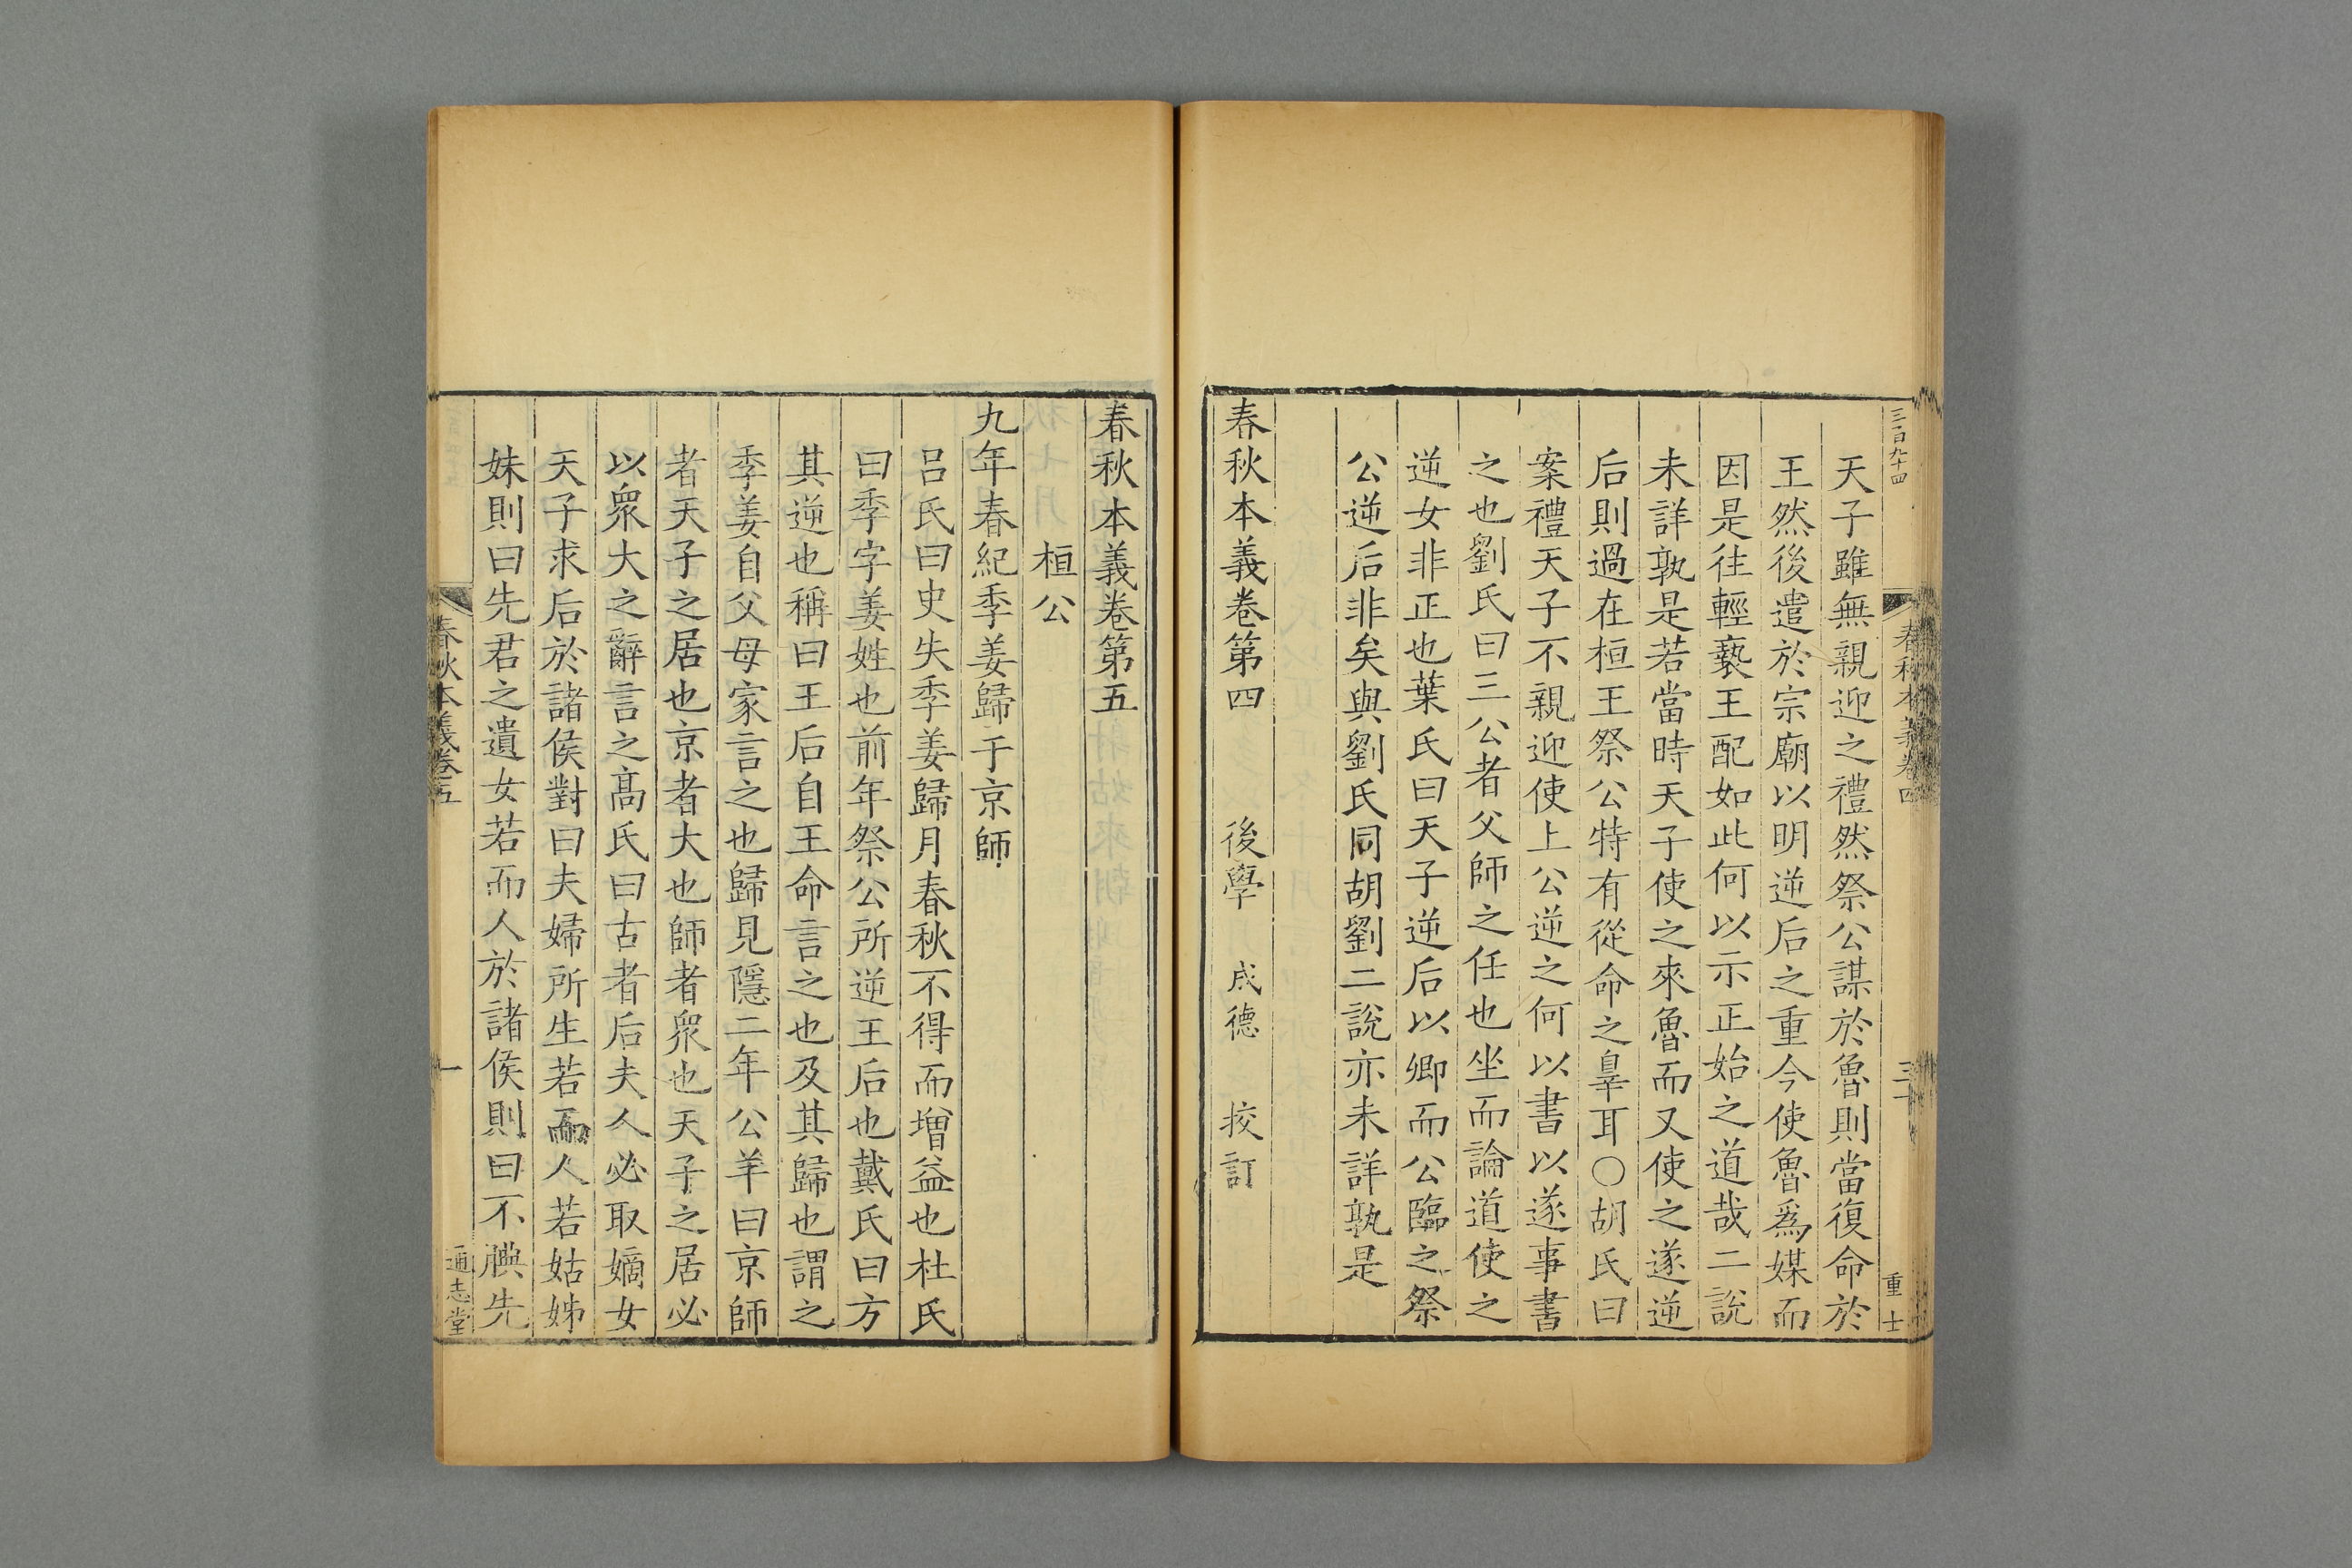 三百九十四
春秋本義卷四
三十
重士
天子雖無親迎之禮然祭公謀於魯則當復命於
王然後遣於宗廟以明逆后之重今使魯爲媒而
因是往輕褻王配如此何以示正始之道哉二說
未詳孰是若當時天子使之來魯而又使之遂逆
后則過在桓王祭公特有從命之辠耳○胡氏曰
案禮天子不親迎使上公逆之何以書以遂事書
之也劉氏曰三公者父師之任也坐而論道使之
逆女非正也葉氏曰天子逆后以卿而公臨之祭
公逆后非矣與劉氏同胡劉二說亦未詳孰是
春秋本義卷第四 後學 成德 挍訂
春秋本義卷第五
桓公
九年春紀季姜歸于京師
呂氏曰史失季姜歸月春秋不得而增益也杜氏
曰季字姜姓也前年祭公所逆王后也戴氏曰方
其逆也稱曰王后自王命言之也及其歸也謂之
季姜自父母家言之也歸見隱二年公羊曰京師
者天子之居也京者大也師者衆也天子之居必
以衆大之辭言之高氏曰古者后夫人必取嫡女
天子求后於諸侯對曰夫婦所生若而人若姑姊
妹則曰先君之遺女若而人於諸侯則曰不腆先
春秋本義卷五
一
通志堂